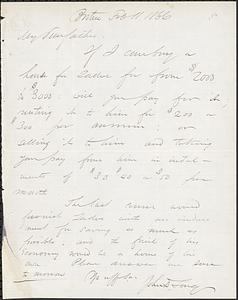 Boston Feb 11 1860
My Dear father.
If I can buy a
house for Zadoc for from $2000
to $3000: will you pay for it,
renting it to him for $200 or
$300 per annum: or
selling it to him and taking
your pay from him in instal-
ments of $30 $40 or $50 per
month
The last course would
furnish Zadoc with an induce
ment for saving as much as
possible; and the fruit of his
economy would be a home of his
own. Please answer in season
to morrow
Yr aff. son
John D. Long